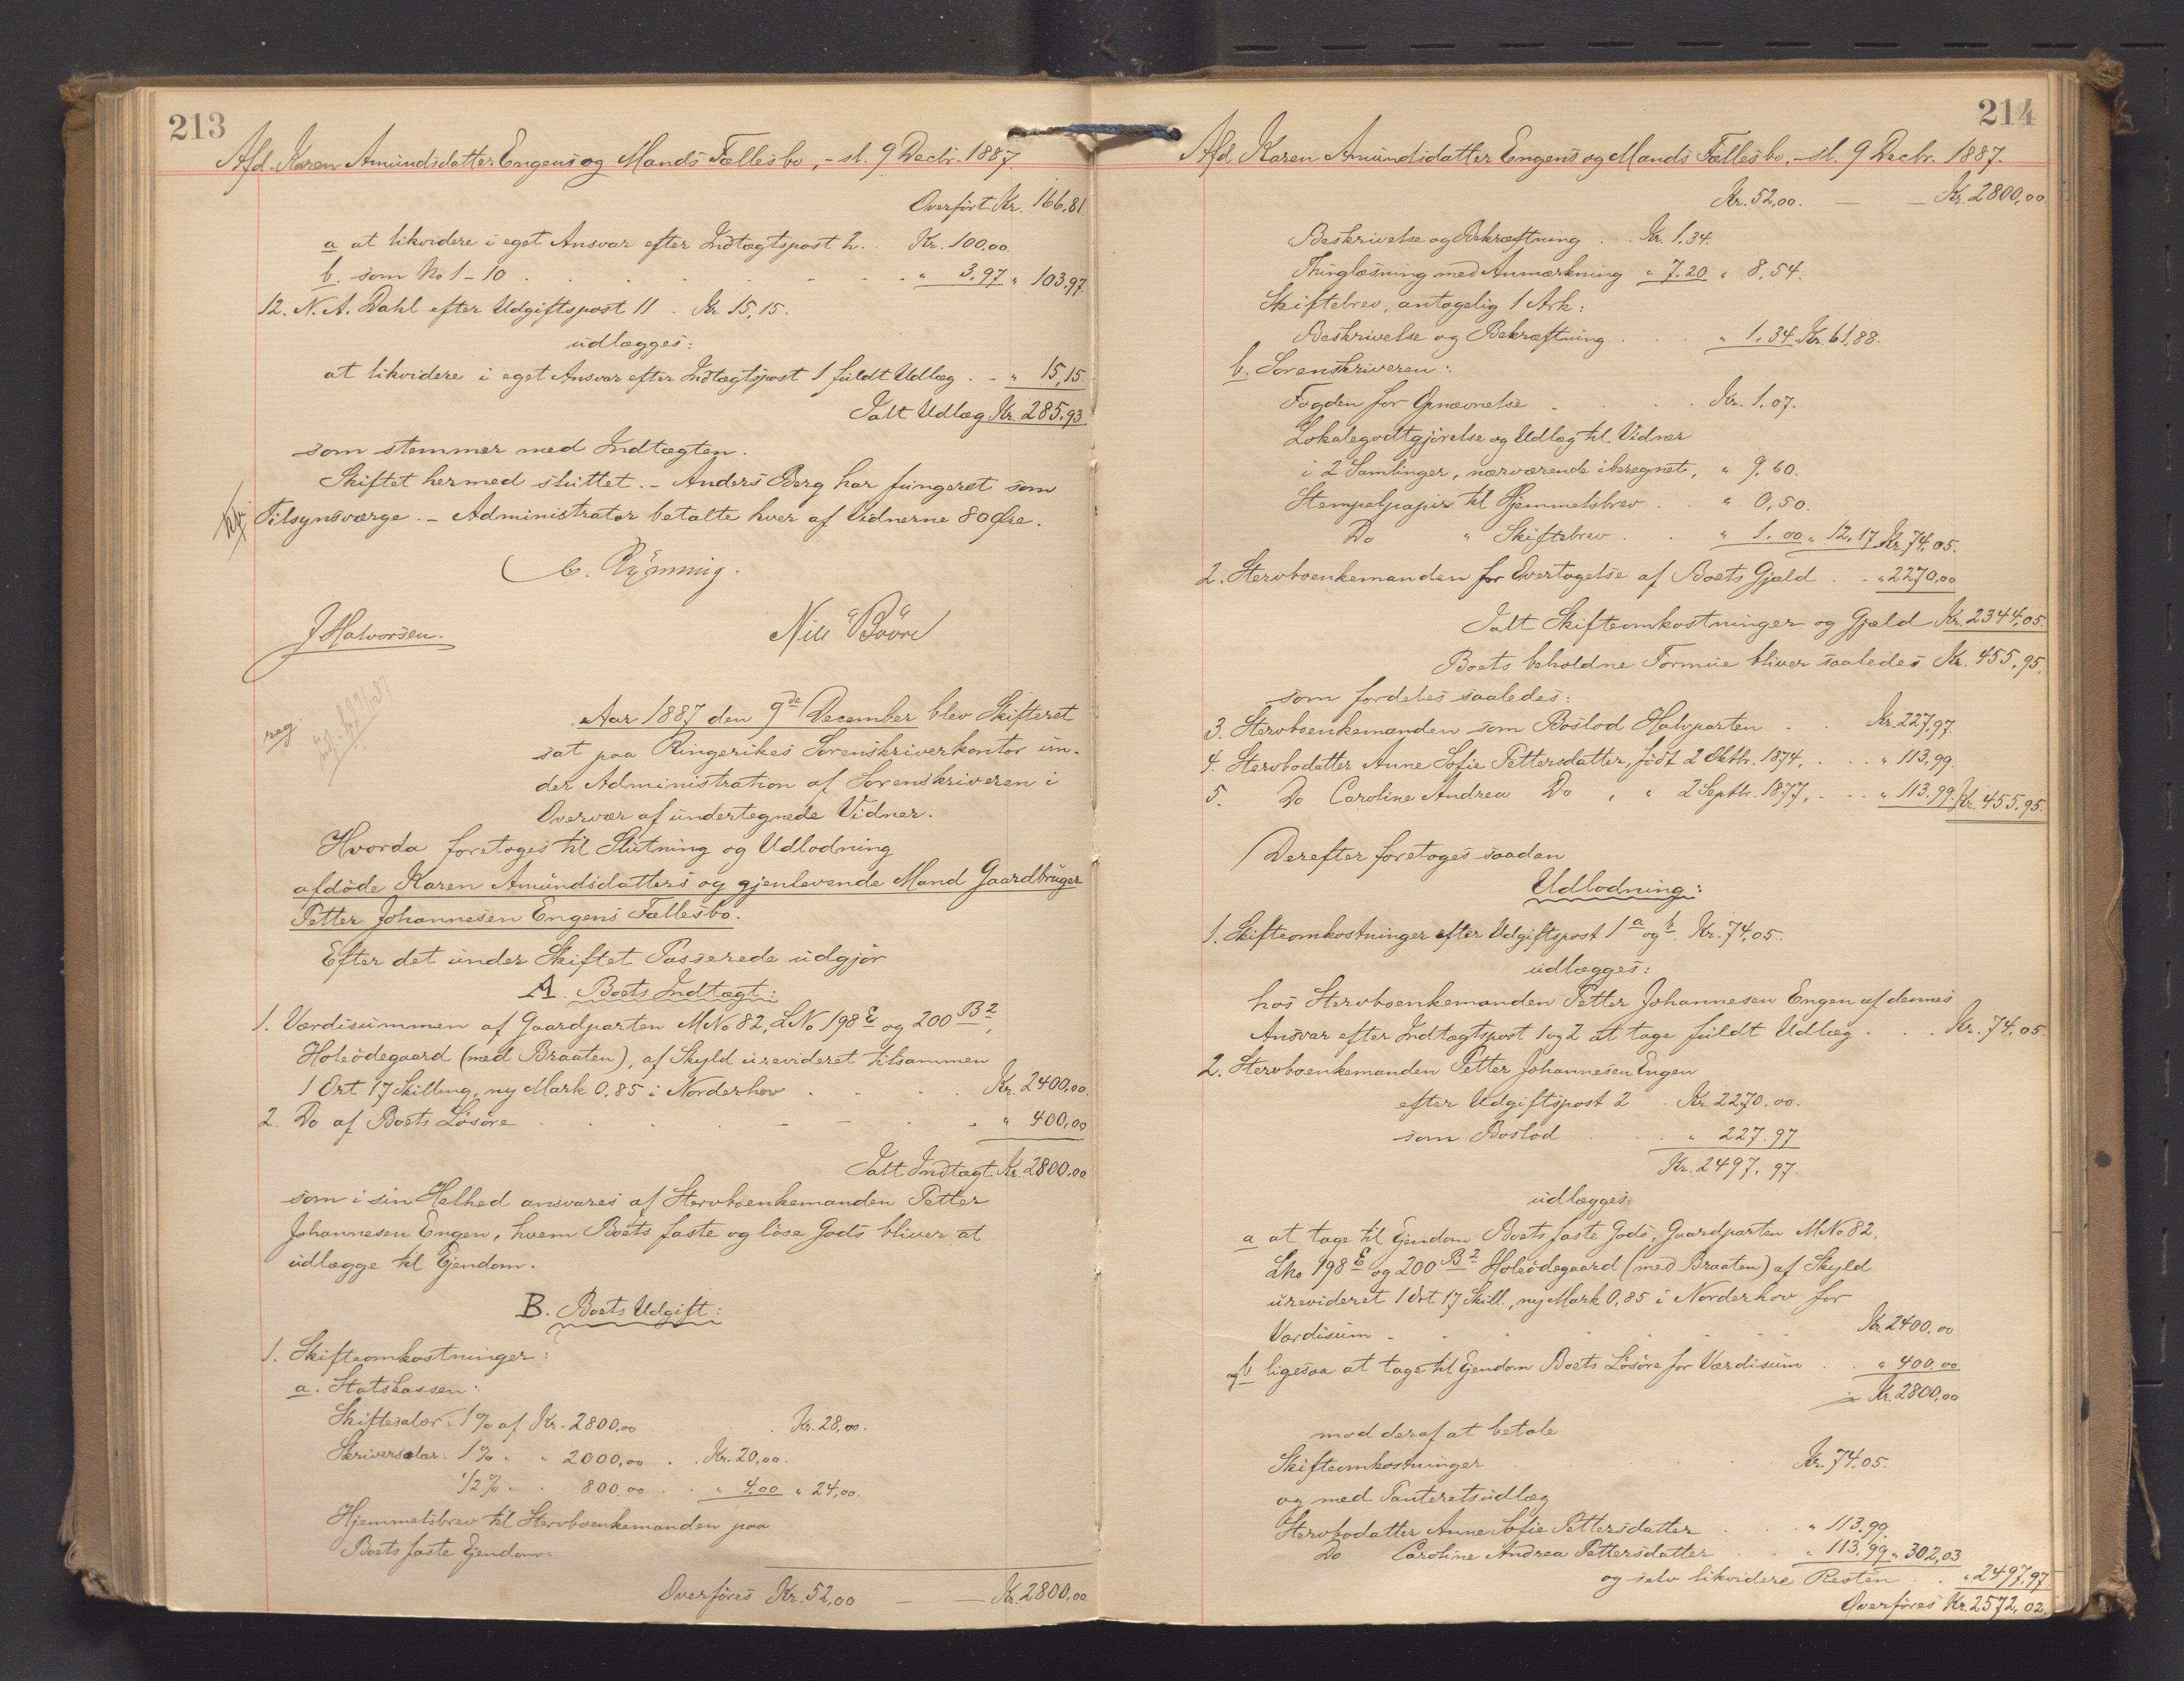 213
Afd. Karen Amundsdatter Engens og Mands Fællesbo, - sl. 9 Decbr. 1887.
Overfört Kr. 166,81
a at likvidere i eget Ansvar efter Indtægtspost 2. . Kr. 100,00
b. som No 1 - 10 . . . . . . . " 3.97 " 103.97.
12. N. A. Dahl efter Udgiftspost 11 . Kr. 15,15.
udlægges:
at likvidere i eget Ansvar efter Indtægtspost 1 fuldt Udlæg . - " 15,15.
Ialt Udlæg Kr. 285.93.
som stemmer med Indtægten.
Skiftet hermed sluttet. - Anders Berg har fungeret som
Tilsynsværge. - Administrator betalte hver af Vidnerne 80 Øre.
C. Rynning.
J Halvorsen.
Nils Bööre
reg.
Aar 1887 den 9de December blev Skifteret
sat paa Ringerikes Sorenskriverkontor un-
der Administration af Sorenskriveren i
Overvær af undertegnede Vidner.
Hvorda foretoges til Slutning og Udlodning
afdöde Karen Amundsdatters og gjenlevende Mand Gaardbruger
Petter Johannesen Engens Fællesbo.
Efter det under Skiftet Passerede udgjör
A. Boets Indtægt:
1. Værdisummen af Gaardparten MNo 82, LNo 198 E og 200 B2,
Holeödegaard (med Braaten), af Skyld urevideret tilsammen
1 Ort 17 Skilling, ny Mark 0,85 i Norderhov . . . . Kr. 2400,00
2. Do af Boets Lösöre . . . . - - . . " 400,00
Ialt Indtægt Kr. 2800,00
som i sin Helhed ansvares af Stervboenkemanden Petter
Johannesen Engen, hvem Boets faste og löse Gods bliver at
udlægge til Ejendom.
B. Boets Udgift:
1. Skifteomkostninger:
a. Statskassen:
Skiftesalær: 1 % af Kr. 2800,00 . . . Kr. 28,00.
Skriversalær: 1 % " " 2000,00 . . Kr. 20,00.
1/2 % " . 800.00 . . " 4.00 " 24,00.
Hjemmelsbrev til Stervboenkemanden paa
Boets faste Ejendom:
Overföres Kr. 52,00 — — Kr. 2800,00
214
Afd. Karen Amundsdatter Engens og Mands Fællesbo, - sl. 9 Decbr. 1887.
Kr. 52,00. — — Kr. 2800,00.
Beskrivelse og Bekræftning . . Kr. 1.34.
Thinglæsning med Anmærkning " 7.20 " 8,54.
Skiftebrev, antagelig 1 Ark:
Beskrivelse og Bekræftning . . . " 1.34 Kr. 61,88.
b. Sorenskriveren:
Fogden for Opnævnelse . . . . Kr. 1.07.
Lokalegodtgjörelse og Udlæg til Vidner
i 2 Samlinger, nærværende iberegnet, " 9.60.
Stempelpapir til Hjemmelsbrev . . " 0,50.
Do " Skiftebrev . . " 1.00 " 12,17 Kr. 74,05.
2. Stervboenkemanden for Overtagelse af Boets Gjæld . . " 2270,00
Ialt Skifteomkostninger og Gjæld Kr. 2344,05.
Boets beholdne Formue bliver saaledes Kr. 455,95.
som fordeles saaledes:
3. Stervboenkemanden som Boslod Halvparten . . Kr. 227,97.
4. Stervbodatter Anne Sofie Pettersdatter, född 2 Oktbr. 1874. . . . " 113,99.
5. Do Caroline Andrea Do , " 2 Septbr. 1877, . . . " 113.99 Kr. 455,95.
Derefter foretoges saadan
Udlodning:
1. Skifteomkostninger efter Udgiftspost 1 a og b. Kr. 74,05.
udlægges:
hos Stervboenkemanden Petter Johannesen Engen af dennes
Ansvar efter Indtægtspost 1 og 2 at tage fuldt Udlæg . . . Kr. 74,05
2. Stervboenkemanden Petter Johannesen Engen
efter Udgiftspost 2 . Kr. 2270,00.
som Boslod . . . " 227.97
Kr. 2497,97.
udlægges:
a at tage til Ejendom Boets faste Gods, Gaardparten MNo 82,
LNo 198 E og 200 B2 Holeödegaard (med Braaten) af Skyld
urevideret 1 Ort 17 Skill., ny Mark 0,85 i Norderhov for
Værdisum . . . . . . . Kr. 2400,00
og b ligesaa at tage til Ejendom Boets Lösöre for Værdisum . . " 400,00
Kr. 2800,00
mod deraf at betale
Skifteomkostninger . . . Kr. 74,05.
og med Panteretsudlæg
Stervbodatter Anne Sofie Pettersdatter . . " 113.99.
Do Caroline Andrea Pettersdatter . . " 113.99 " 302,03
og selv likvidere Resten . . " 2497.97.
Overföres Kr. 2572,02.